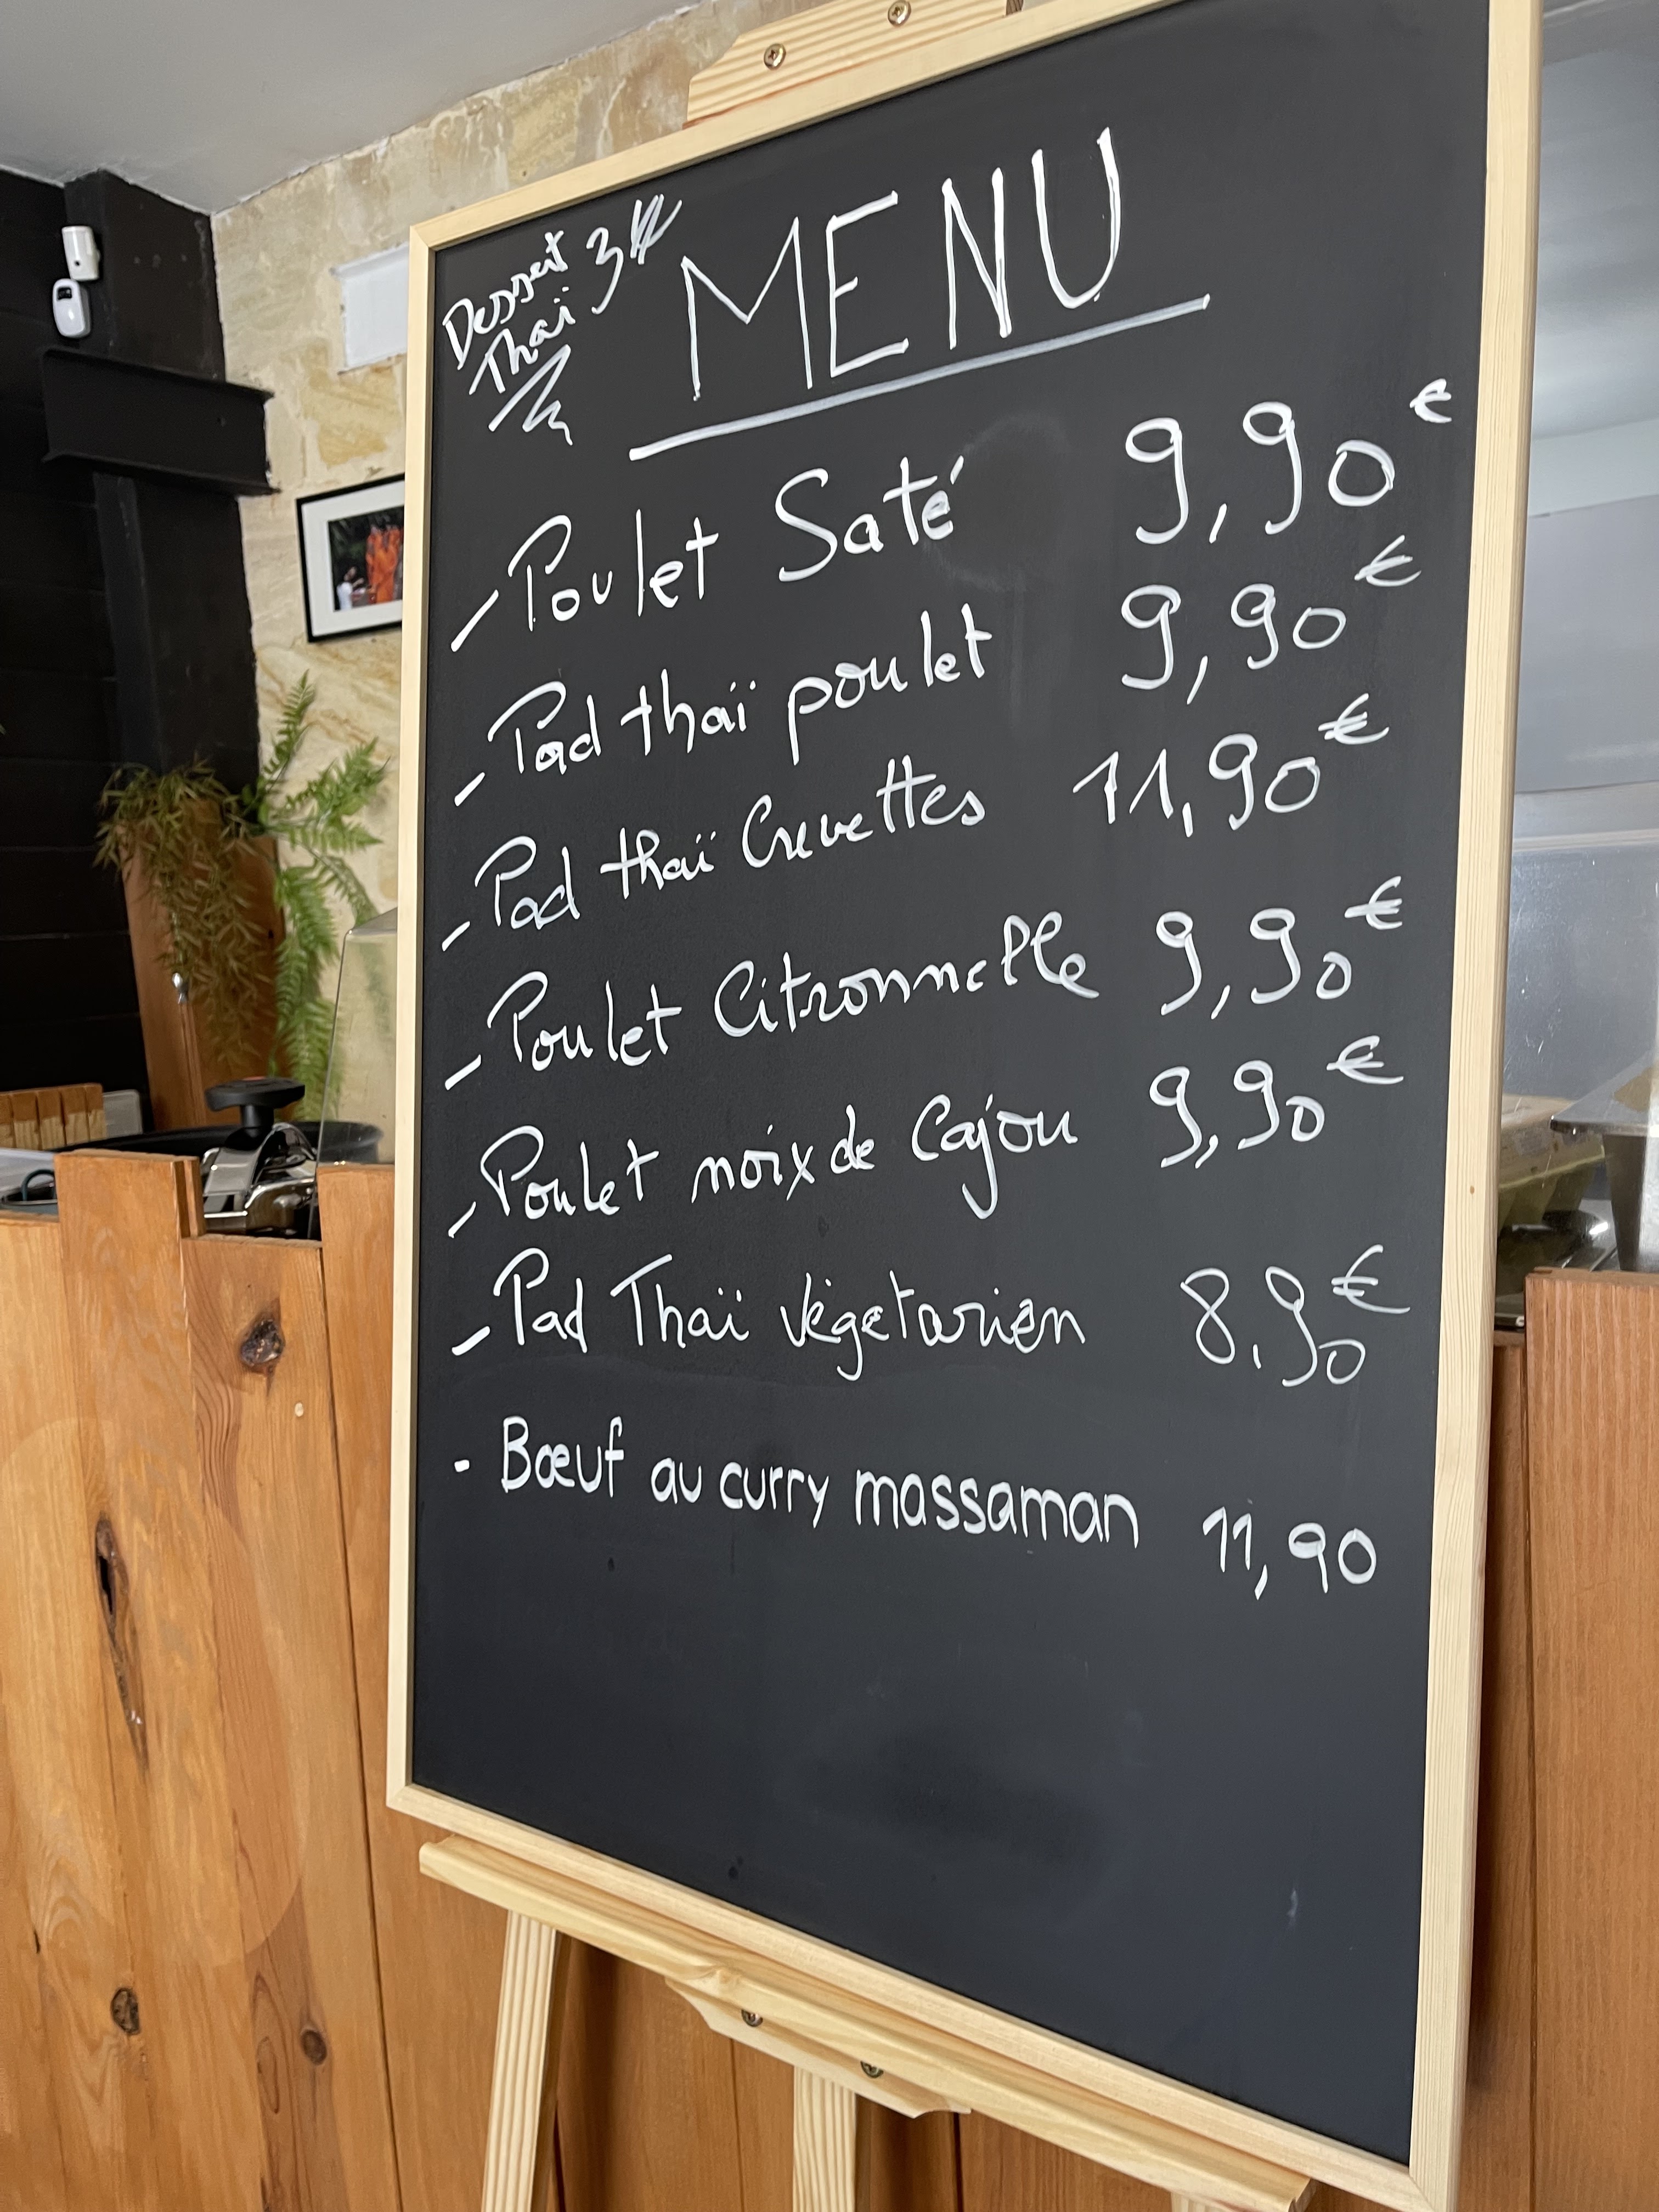 Dessert 3€
Thaï
MENU
- Poulet Saté 9,90€
- Pad thaï poulet 9,90€
- Pad thaï Crevettes 11,90€
- Poulet Citronnelle 9,90€
- Poulet noix de Cajou 9,90€
- Pad Thaï végetarien 8,90€
- Bœuf au curry massaman 11,90